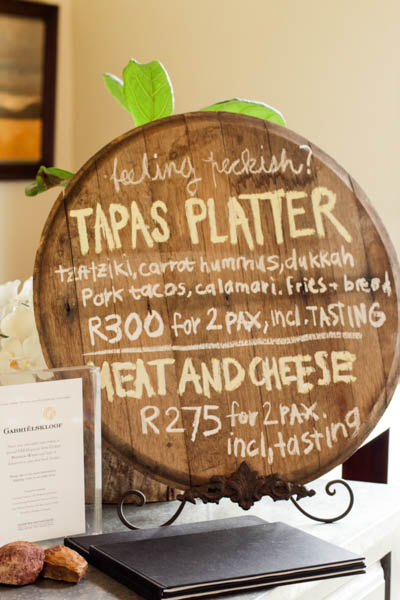 feeling peckish?
TAPAS PLATTER
tzatziki, carrot hummus, dukkah
Pork tacos, calamari. Fries + bread
R300 for 2 PAX, incl. TASTING
MEAT AND CHEESE
R275 for 2 PAX.
incl, tasting
GABRIËLSKLOOF